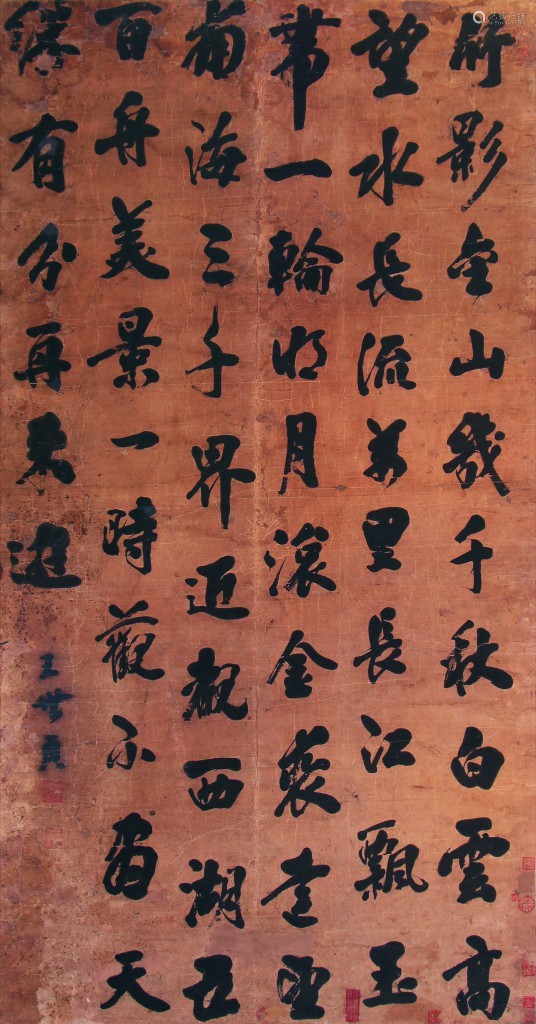 竹影金山幾千秋白雲高
望水長流萬里長江飄玉
帶一輪明月滾金裘遠望
南海三千界近觀西湖五
百舟美景一時觀不盡天
緣有分再來遊
王世貞